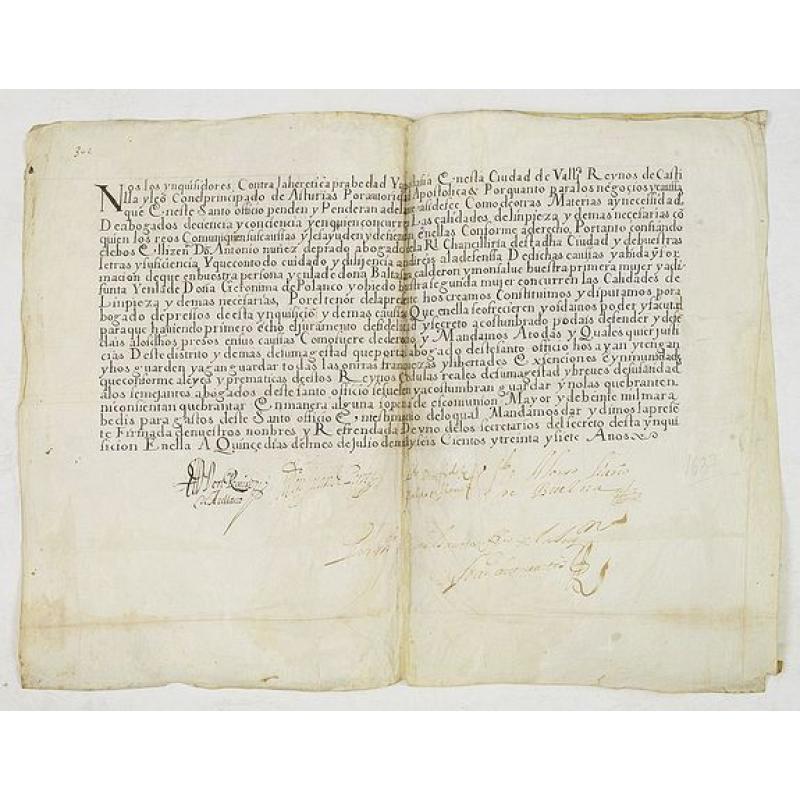 Nos los ynquisidores, Contra laheretica prabedad Y apostasia E nesta Ciudad de Vallᵈ Reynos de Casti
lla y leō Con el principado de Asturias Por autoridad Apostolica & Por quanto para los negocios y causas
que E neste Santo officio penden y Penderan adelante así desee Como de otras Materias ay necesidad,
De abogados de ciencia y conciencia y en quien concurran Las calidades de linpieza y demas necesarias cō
quien los reos Comuniquen sus causas y les ayuden y defiendan en ellas Conforme a derecho, Por tanto confiando
de bos E l lizenᵈᵒ Dō. Antonio nuñez de prado abogado de la Rˡ Chancilleria desta dha Ciudad y de buestras
letras y suficiencia Y que con todo cuidado y diligencia andreis a la defensa De dichas causas y abida ynfor
macion de que en buestra persona y en la de dona Baltasara calderon y monsalue buestra primera muger ya di
funta Y en la de Doña Geronima de Polanco y obiedo buestra segunda muger concurren las Calidades de
Linpieza y demas necesarias, Por el tenor de la presente hos creamos Constituimos y diputamos por a
bogado de presos de esta ynquisiciō y demas causas Que en ella se ofrecieren y os damos poder y facultad
para que haviendo primero echo el juramento de fidelidad y secreto acostunbrado podais defender y defe
dais a los dichos presos en sus causas Como fuere de derecho y Mandamos A todas y Quales quier justi
cias De ste distrito y demas de su magestad que por tal abogado deste santo officio hos ayan y tengan
y hos guarden y agan guardar todas las onrras franquezas y libertades E xsenciones e ynmunidades
que conforme a leyes y prematicas de estos Reynos Cedulas reales de su magestad y breves de su santidad
a los semejantes abogados deste santo officio se suelen y acostumbran guardar y no las quebranten
ni consientan quebrantar E n manera alguna so pena de escomunion Mayor y de beinte mil mara
bedis para gastos deste Santo officio E n testimonio de lo qual Mandamos dar y dimos la presē
te Firmada de nuestros nombres y Refrendada De vno de los secretarios del secreto desta ynqui
sicion E n ella A Quince dias del mes de Julio de mil y seis Cientos y treinta y siete Anos
de Arellano
1637